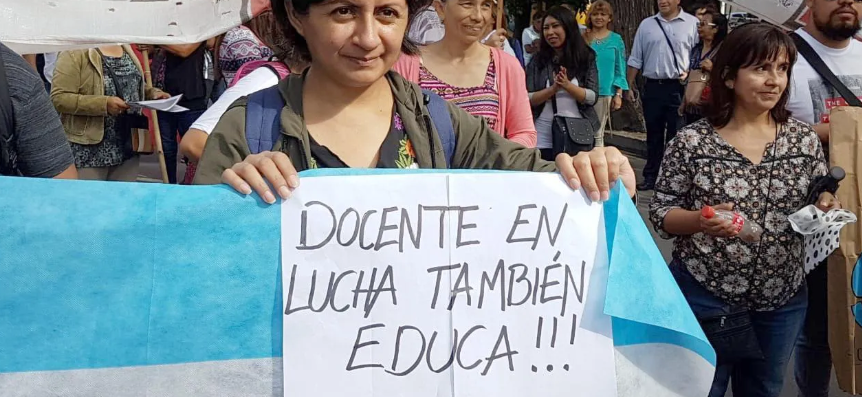 DOCENTE EN
LUCHA TAMBIÉN
EDUCA!!!